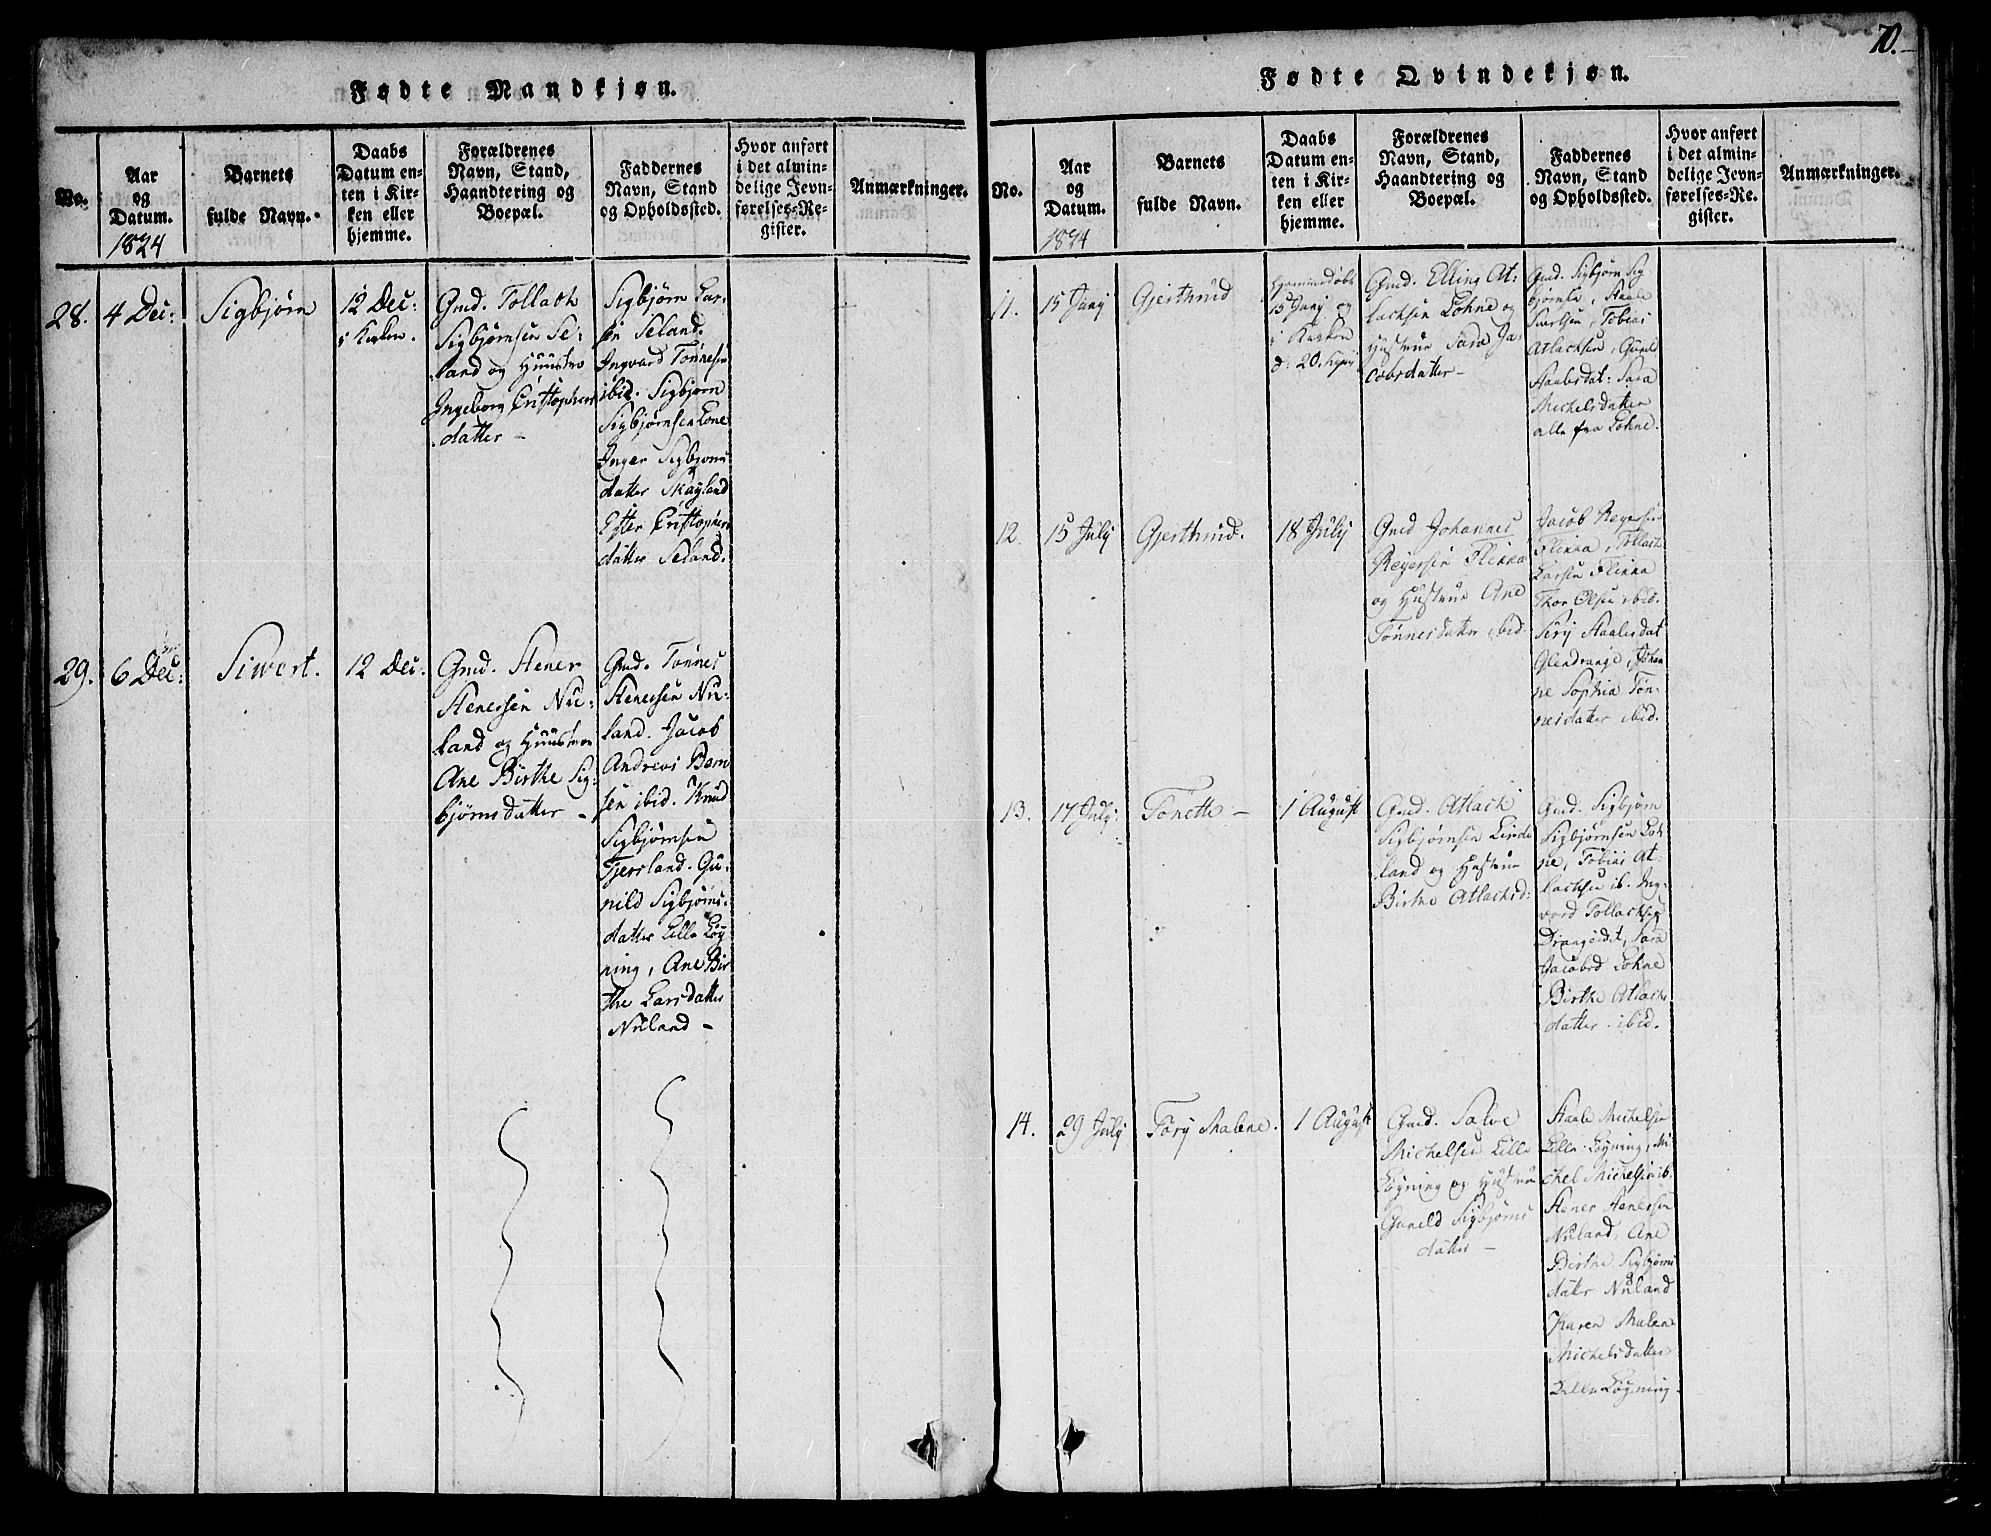 70.
Fødte Mandkjøn.
No.
Aar
og
Datum.
1824
Barnets
fulde Navn.
Daabs
Datum en-
ten i Kir-
ken eller
hjemme.
Forældrenes
Navn, Stand,
Haandtering og
Boepæl.
Faddernes
Navn, Stand
og Opholdssted.
Hvor anført
i det almin-
delige Jevn-
førelses-Re-
gister.
Anmærkninger.
28.
4 Dec:
Sigbjørn
12 Dec:
i Kirken.
Gmd. Tollach
Sigbjørnsen Se-
land og Huustro
Ingeborg Cristophers
datter -
Sigbjørn Lar-
sen Seland.
Ingvard Tønnesen
ibid. Sigbjørn
Sigbjørnsen Lone
Inger Sigbjørns
datter Skayland
Ester Cristophers
datter Seland.
29.
6 Dec:
Siwert.
12 Dec:
Gmd. Stener
Stenersen Nu-
land og Huustroe
Ane Birthe Sig-
bjørnsdatter -
Gmd. Tønnes
Stenersen Nu-
land. Jacob
Andreas
sen ibid. Knud
Sigbjørnsen
Tjersland. Gu-
nild Sigbjørns-
datter Lille Løy
ning, Ane Bir
the Larsdatter
Nuland -
Fødte Qvindekjøn.
No.
Aar
og
Datum.
1824
Barnets
fulde Navn.
Daabs
Datum en-
ten i Kir-
ken eller
hjemme.
Forældrenes
Navn, Stand,
Haandtering og
Boepæl.
Faddernes
Navn, Stand
og Opholdssted.
Hvor anført
i det almin-
delige Jevn-
førelses-Re-
gister.
Anmærkninger.
11.
15 Junj
Gjerthrud
Hjemmedøbt
15 Junj og
i Kirken
d: 20.
Gmd. Elling At-
lachsen Lohne og
Hustrue Sara Ja-
cobsdatter -
Gmd. Sigbjørn Sig-
bjørnsen, Staale
Tobias
Atlachsen, Gunild
Staalesdat: Sara
Michelsdatter
alle fra Lohne.
12.
15 July
Gjerthrud.
18 July
Gmd Johannes
Reyersen Flikka
og Hustrue Ane
Tønnesdatter ibid.
Jacob Reyersen
Flikka, Tollach
Larsen Flikka
Thor Olsen ibid.
Siri Staalesdat
Glendrange, Johan
ne Sophia Tøn-
nesdatter ibid.
13.
17 July.
Tonette -
1 August
Gmd. Atlach
Sigbjørnsen Linde
land og Hustrue
Birthe Atlachsd:
Gmd. Sigbjørn
Sigbjørnsen Loh-
ne, Tobias At-
lachsen ib. Ing-
vard Tollachsen
Drangeidet, Sara
Jacobsd Lohne
Birthe Atlachs
datter ibid.
14.
29 July
Tory Malene.
1 August
Gmd. Salve
Michelsen Lille
Løyning og Hustrue
Gunild Sigbjørns
datter -
Staale Michelsen
Lille Løyning, Mi
chel Michelsen ib.
Stener Stenersen
Nuland, Ane
Birthe Sigbjørns
datter Nuland
Karen Malene
Michelsdatter
Lille Løyning.